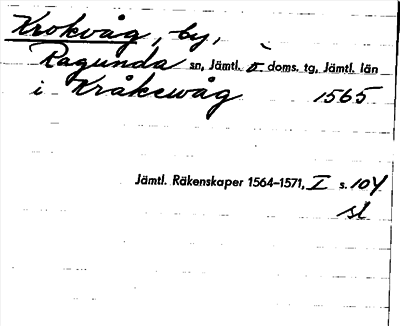 Krokvåg, by,
Ragunda sn, Jämtl. ö. doms. tg, Jämtl. län
i Kråkewåg 1565
Jämtl. Räkenskaper 1564-1571, I s. 104
sl